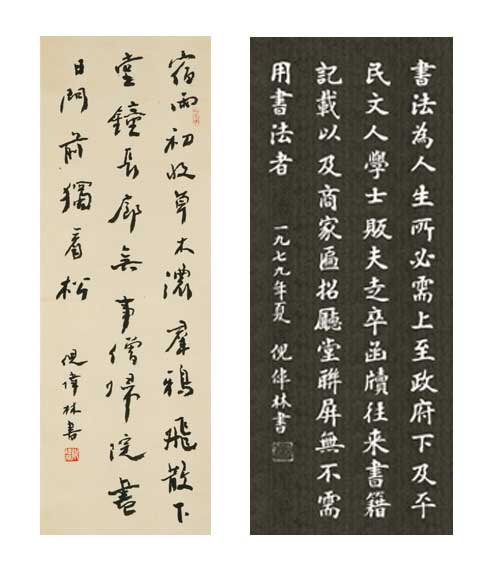 宿雨初收草木濃羣鴉飛散下
堂鐘長廊無事僧歸院盡
日門前獨看松
倪偉林書
書法為人生所必需上至政府下及平
民文人學士販夫走卒函牘往來書籍
記載以及商家匾招廳堂聯屏無不需
用書法者
一九七九年夏 倪偉林書